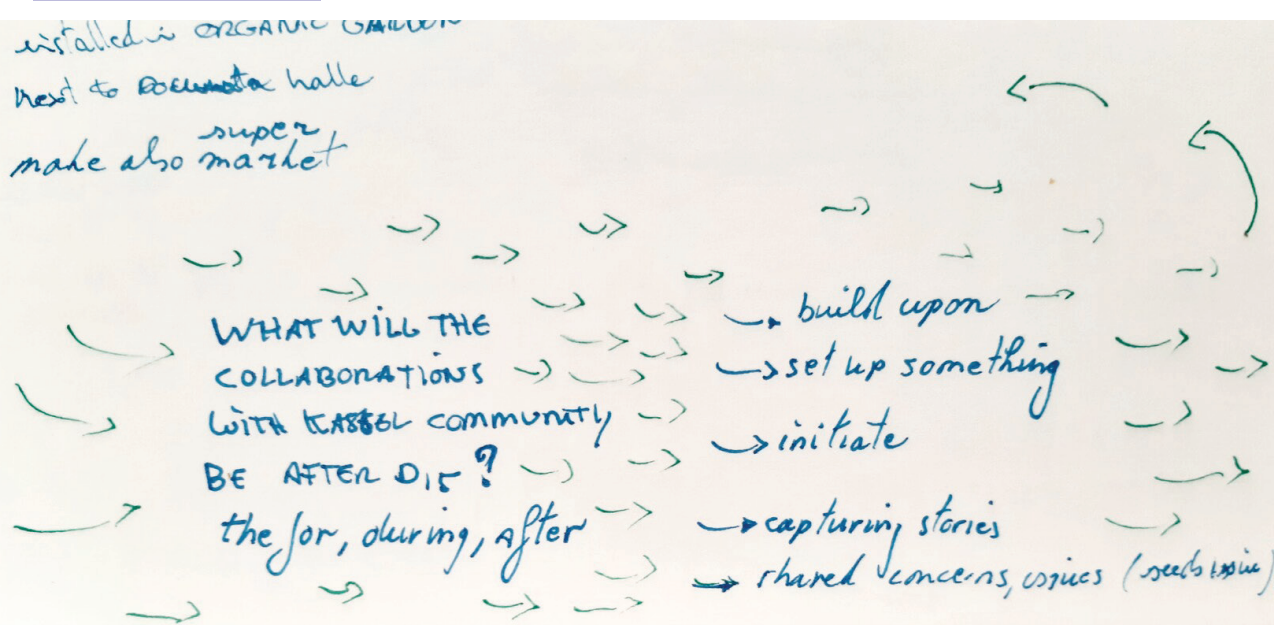 installed in ORGANIC GARDEN
next to documenta halle
super
make also market
WHAT WILL THE
COLLABORATIONS
WITH KASSEL COMMUNITY
BE AFTER D15?
the for, during, after
build upon
set up something
initiate
capturing stories
shared concerns, issues (seeds issue)